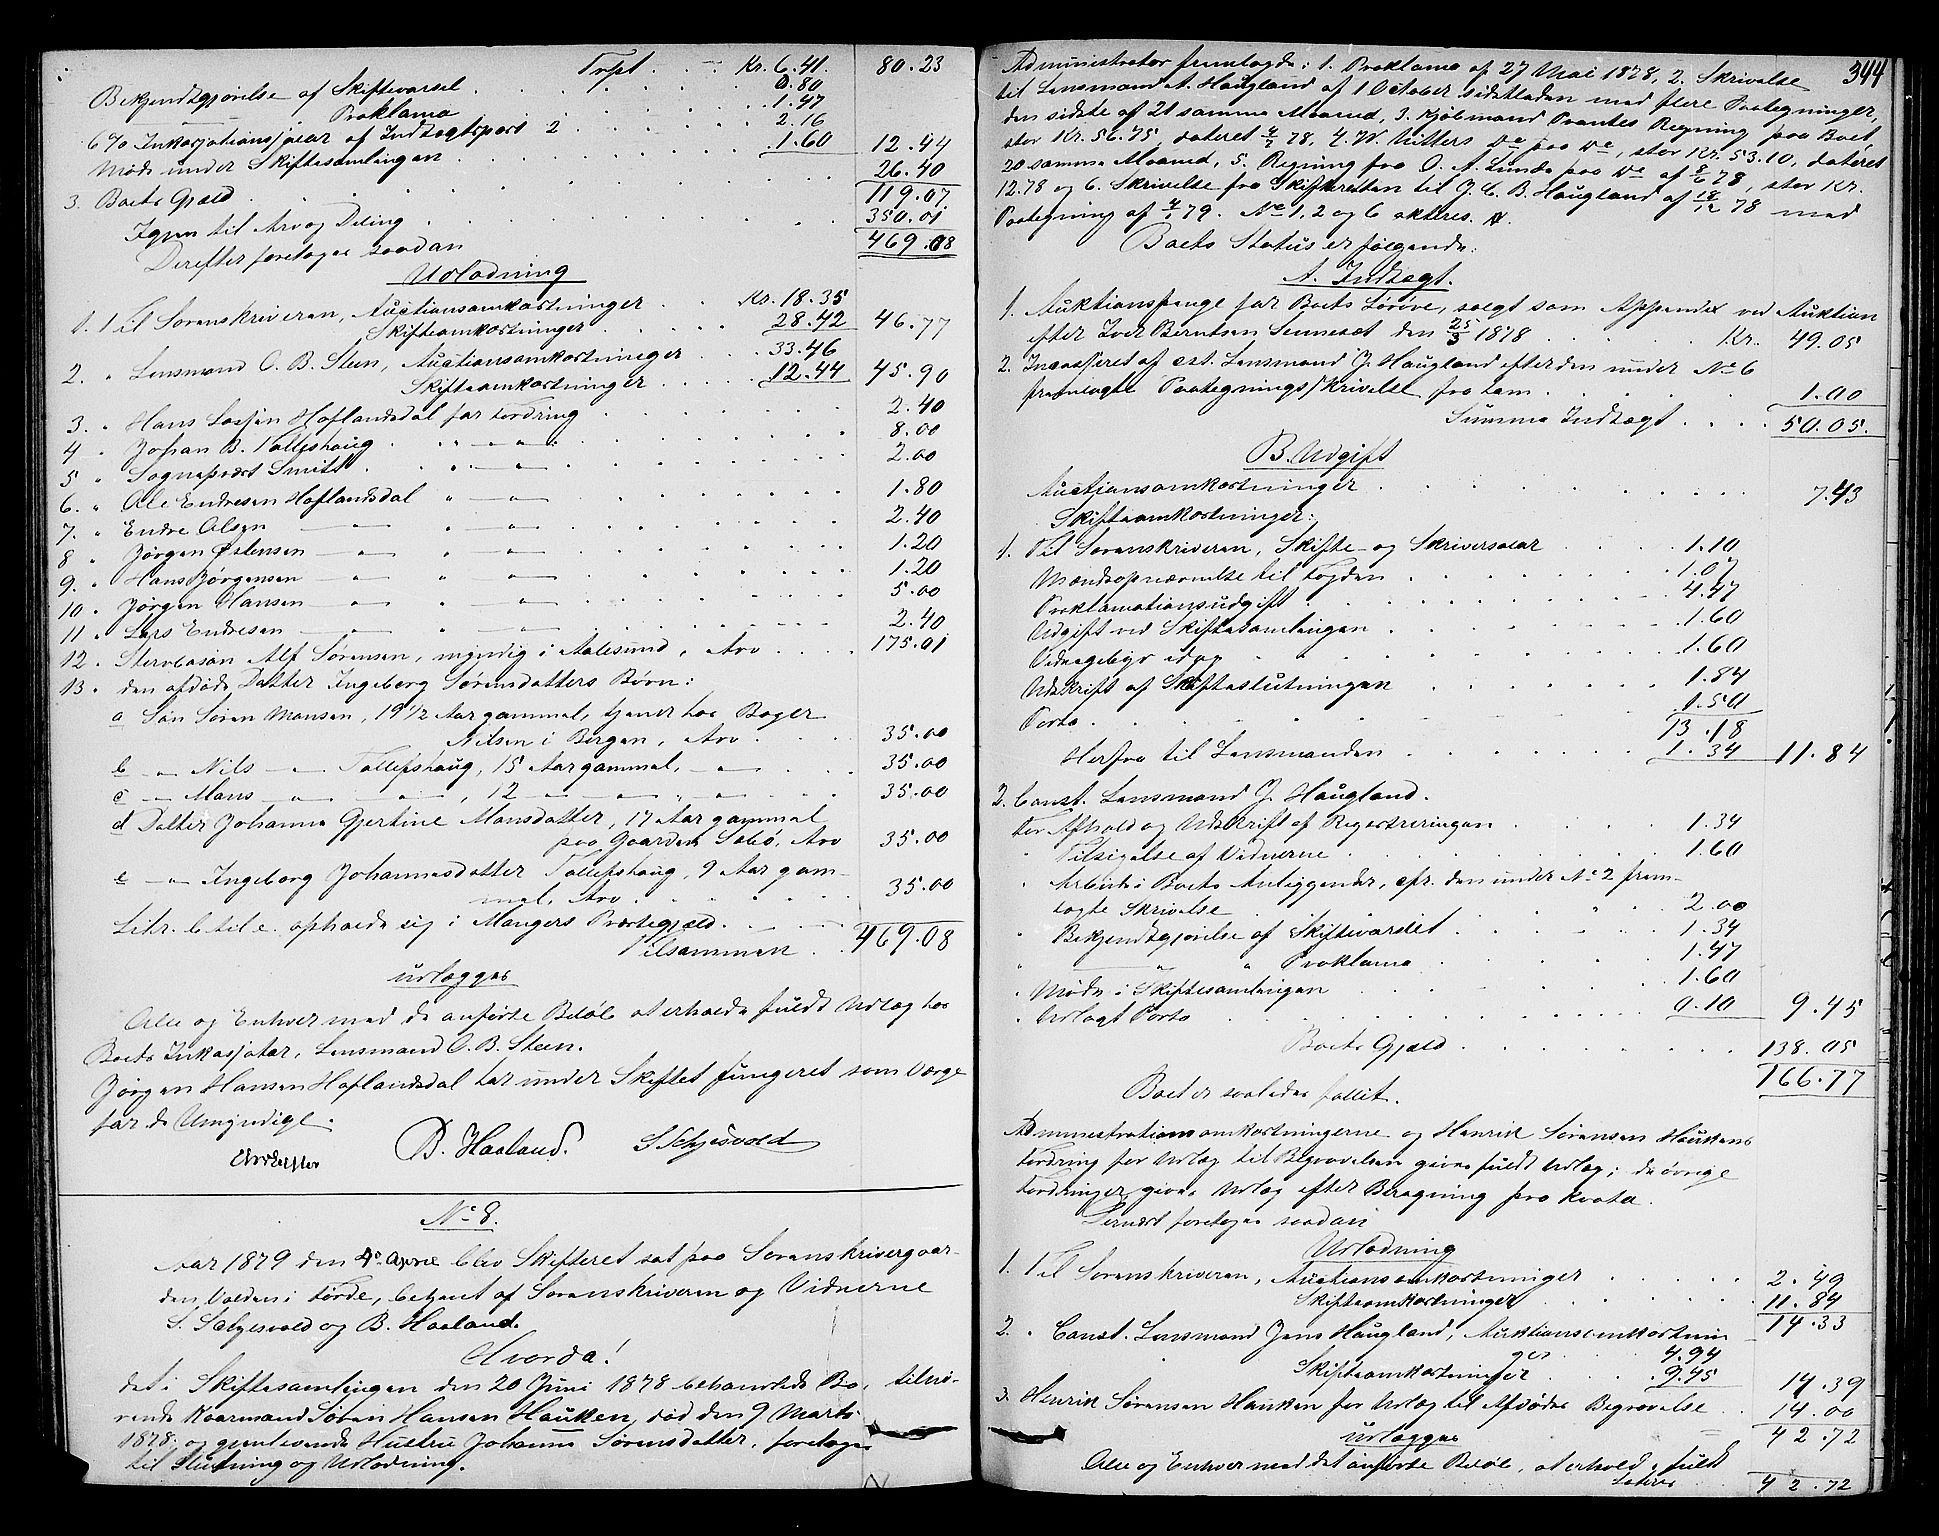 Trpt. Kr. 6.41. 80.23
Bekjendtgjørelse af Skiftevarsel 0.80
— Proklama 1.47
6% Inkassationssalær af Indtægtspost 2 2.16
Møde under Skiftesamlingen 1.60 12.44
3. Boets Gjæld 26.40
119.07
Igjen til Arv og Deling 350.01
469.08
Derefter foretages saadan
Udlodning
1. Til Sorenskriveren, Auctionsomkostninger Kr. 18.35
Skifteomkostninger 28.42 46.77
2. " Lensmand O. B. Steen, Auctionsomkostninger 33.46
Skifteomkostninger 12.44 45.90
3. " Hans Lassen Hoflandsdal for Fordring 2.40
4 " Johan B. Tollefshaug " — " — 8.00
5 " Sognepræst Smitt " — " — 2.00
6. " Ole Endresen Hoflandsdal " — " — 1.80
7. " Endre Olsen — " — " — " — 2.40
8 " Jørgen Østensen — " — " — " — 1.20
9. " Hans Jørgensen — " — " — " — 1.20
10 " Jørgen Hansen — " — " — " — 5.00
11 " Lars Endresen — " — " — " — 2.40
12. " Stervbosøn Alf Sørensen, myndig i Aalesund, Arv 175.01
13 " den afdøde Datter Ingeborg Sørensdatters Børn:
a Søn Søren Monsen, 19 1/2 Aar gammel, tjener hos Bager
Nilsen i Bergen, Arv 35.00
b — " — Nils — " — Tollefshaug, 15 Aar gammel, — " — 35.00
c — " — Mons — " — — " —, 12 — " — — " — 35.00
d Datter Johanne Gjertine Monsdatter, 17 Aar gammel
paa Gaarden Sæbø, Arv 35.00
e — " — Ingeborg Johannesdatter Tollefshaug, 9 Aar gam-
mel, Arv 35.00
Litr. b til e. opholde sig i Mangers Præstegjæld.
Tilsammen 469.08
udlægges
Alle og Enhver med de anførte Beløb at erholde fuldt Udlæg hos
Boets Inkassator, Lensmand O. B. Steen.
Jørgen Hansen Hoflandsdal har under Skiftet fungeret som Værge
for de Umyndige.
B. Haaland. S Seljesvold
No 8.
Aar 1879 den 4de April blev Skifteret sat paa Sorenskrivergaar-
den Volden i Førde, betjent af Sorenskriveren og Vidnerne
S. Seljesvold og B. Haaland.
Hvorda!
det i Skiftesamlingen den 20 Juni 1878 behandlede Bo, tilhø-
rende Kaarmand Søren Hansen Hauken, død den 9 Marts
1878, og gjenlevende Hustru Johanne Sørensdatter, foretoges
til Slutning og Udlodning.
344
Administrator fremlagde: 1. Proklama af 27 Mai 1878, 2. Skrivelse
til Lensmand A. Haugland af 1 October sidstleden med flere Paategninger,
den sidste af 21 samme Maaned, 3. Kjøbmand Prantes Regning paa Boet,
stor Kr. 56.75, dateret 2/7 78, 4. W. Vitters do paa do, stor Kr. 53.10, dateret
20 samme Maaned, 5. Regning fra O. A. Lunde paa do af 8/6 78, stor Kr.
12.78 og 6. Skrivelse fra Skifteretten til J. C. B. Haugland af 18/12 78 med
Paategning af 4/1 79. No 1, 2 og 6 akteres.
Boets Status er følgende:
A. Indtægt.
1. Auktionspenge for Boets Løsøre, solgt som Appendix ved Auktion
efter Iver Berntsen Sunnesæt den 25/3 1878 Kr. 49.05
2. Incasseret af cst. Lensmand J. Haugland efter den under No 6
fremlagte Paategningsskrivelse fra ham 1.00
Summa Indtægt 50.05.
B. Udgift
Auctionsomkostninger 7.43
Skifteomkostninger:
1. Til Sorenskriveren, Skifte- og Skriversalær 1.10
Mændsopnævnelse til Fogden 1.07
Proklamationsudgift 4.47
Udgift ved Skiftesamlingen 1.60
Vidnegebyr idag 1.60
Udskrift af Skifteslutningen 1.84
Porto 1.50
13.18
Herfra til Lensmanden 1.34 11.84
2. Const. Lensmand J. Haugland.
For Afhold og Udskrift af Registreringen 1.34
" Tilsigelse af Vidnerne 1.60
" Arbeide i Boets Anliggender, cfr. den under No 2 frem-
lagte Skrivelse 2.00
" Bekjendtgjørelse af Skiftevarslet 1.34
" — " — " Proklama 1.47
" Møde i Skiftesamlingen 1.60
" Udlagt Porto 0.10 9.45
Boets Gjæld 138.05
166.77
Boet er saaledes fallit.
Administrationsomkostningerne og Henrik Sørensen Haukens
Fordring for Udlæg til Begravelsen gives fuldt Udlæg; de øvrige
Fordringer gives Udlæg efter Beregning pro kvota.
Dernæst foretoges saadan
Udlodning
1. Til Sorenskriveren, Auctionsomkostninger 2.49
Skifteomkostninger 11.84
14.33
2. " Const. Lensmand Jens Haugland, Auktionsomkostnin-
ger 4.94
Skifteomkostninger 9.45 14.39
3. Henrik Sørensen Hauken for Udlæg til Afdødes Begravelse 14.00
udlægges 42.72
Alle og Enhver med det anførte Beløb, at erholde fuldt
Lateris 42.72